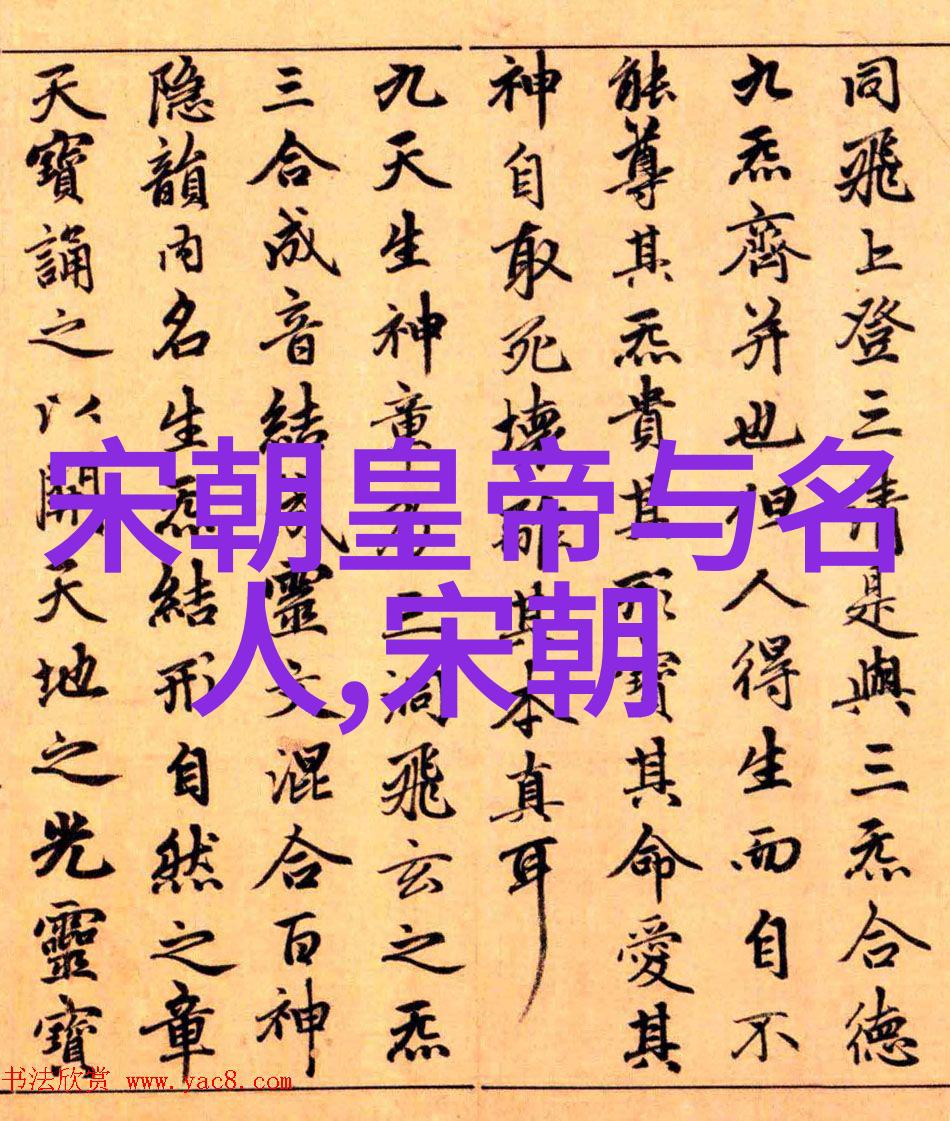 同飛上登三清是與三炁合德
九炁齊并也但人得生而自不
能尊其炁貴其形寶其命愛其
神自取死壞離其本真耳
九天生神章乃三洞飛玄之炁
三合成音結成靈文混合百神
隐韻内名生炁結形自然之章
天寶誦之以開天地之光靈寶
宋朝皇帝与名
人,宋朝
书法欣赏 www.yac8.com